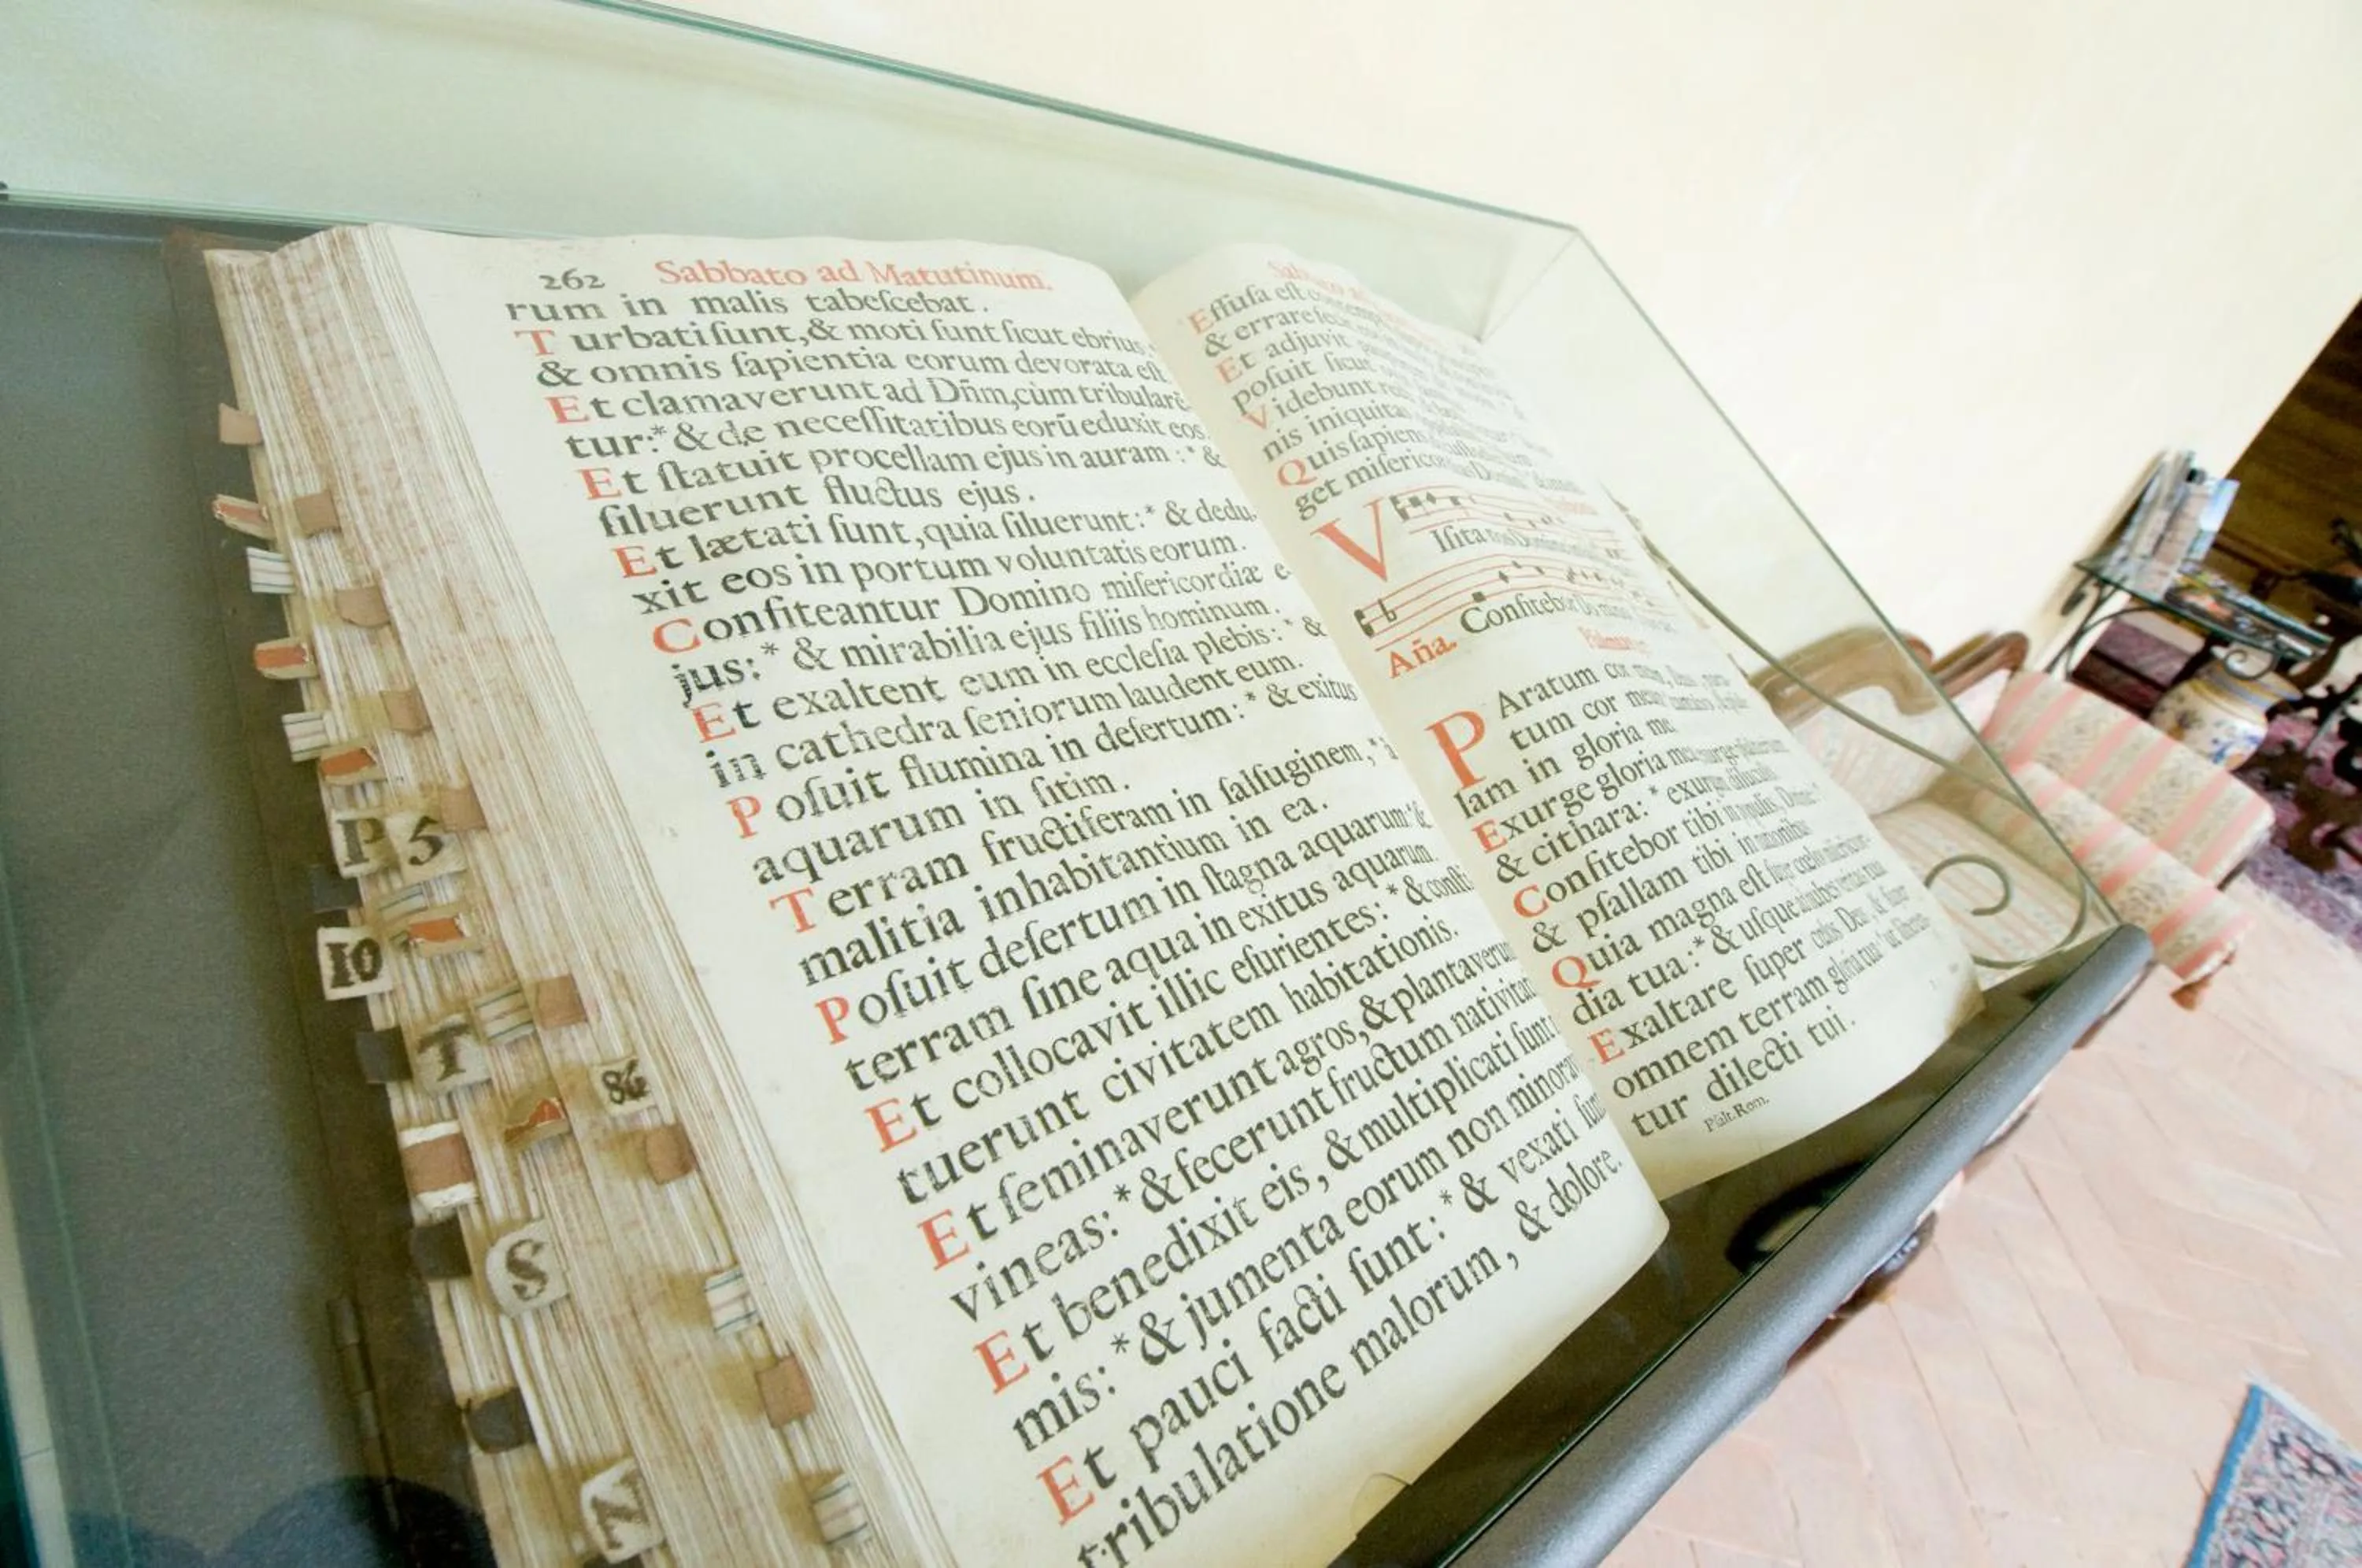 262 Sabbato ad Matutinum.
rum in malis tabeſcebat.
Turbati ſunt, & moti ſunt ſicut ebrius
& omnis ſapientia eorum devorata eſt
Et clamaverunt ad Dñm, cùm tribularē
tur:* & de neceſſitatibus eorū eduxit eos.
Et ſtatuit procellam ejus in auram:* &
ſiluerunt fluctus ejus.
Et lætati ſunt, quia ſiluerunt:* & dedu-
xit eos in portum voluntatis eorum.
Confiteantur Domino miſericordiæ e-
jus:* & mirabilia ejus filiis hominum.
Et exaltent eum in eccleſia plebis:* &
in cathedra ſeniorum laudent eum.
Poſuit flumina in deſertum:* & exitus
aquarum in ſitim.
Terram fructiferam in ſalſuginem,* à
malitia inhabitantium in ea.
Poſuit deſertum in ſtagna aquarum:* &
terram ſine aqua in exitus aquarum.
Et collocavit illic eſurientes:* & conſti-
tuerunt civitatem habitationis.
Et ſeminaverunt agros, & plantaverun
vineas:* & fecerunt fructum nativitat
Et benedixit eis, & multiplicati ſunt
mis:* & jumenta eorum non minorav
Et pauci facti ſunt:* & vexati ſun
tribulatione malorum, & dolore.
Effuſa eſt
& errare
Et adjuvit
poſuit ſicut
Videbunt
nis iniquitas
Quis ſapiens
get miſericordias Domini
Viſita nos Domine
Aña. Confitebor Domino
PAratum cor
tum cor meum
lam in gloria me
Exurge gloria mea
& cithara:* exurgam diluculo
Confitebor tibi in populis, Domine
& pſallam tibi in nationibus
Quia magna eſt ſuper cœlos miſericor-
dia tua:* & uſque ad nubes veritas tua
Exaltare ſuper cœlos Deus, & ſuper
omnem terram gloria tua:* ut liberen-
tur dilecti tui.
Pſalt. Rom.
P 5
10
T
86
S
N